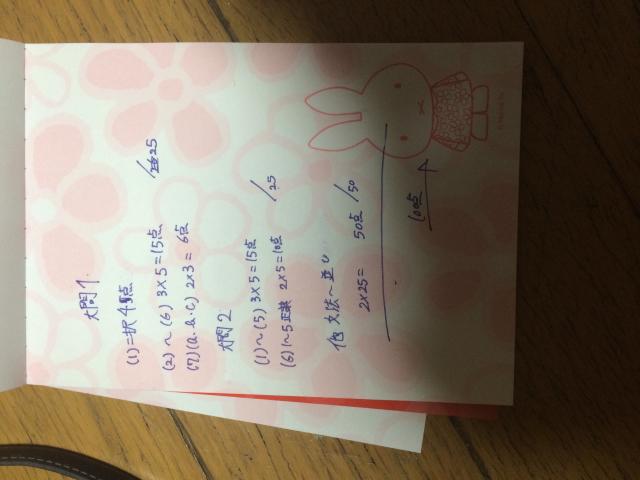 大問1.
(1) 二択4点
(2)~(6) 3×5=15点
(7)(a.b.c) 2×3=6点 /25
大問2
(1)~(5) 3×5=15点
(6) 1~5 2×5=10点 /25
他 文法~並び
2×25= 50点 /50
100点